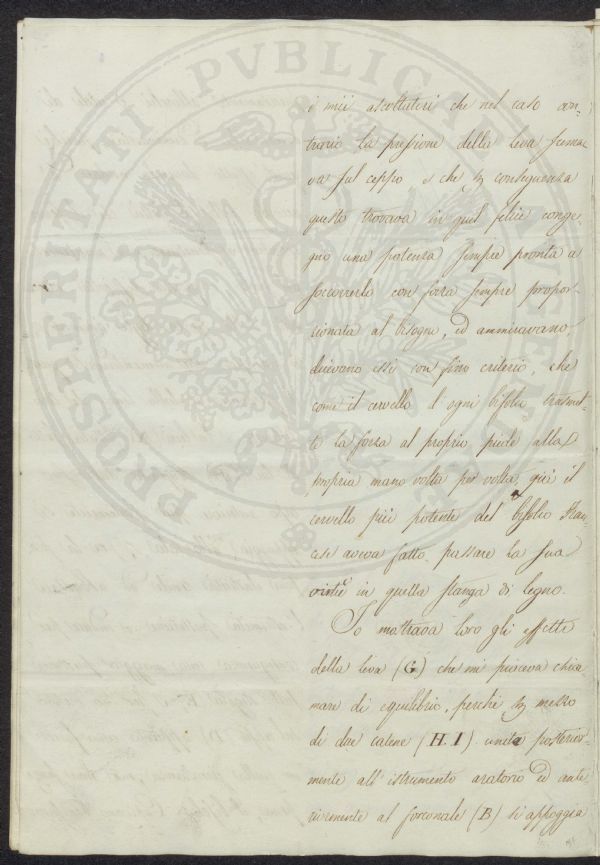 i miei ascoltatori che nel caso con-
trario la pressione della leva scema
va sul ceppo, e che conseguenza
questo trovava in quel felice conge-
gno una potenza sempre pronta a
soccorrerlo con forza sempre propor-
zionata al bisogno, ed ammiravano,
dicevano essi con fino criterio, che
come il cervello d'ogni bifolco trasmet-
te la forza al proprio piede alla
propria mano volta per volta, qui il
cervello più potente del bifolco Fran-
cese aveva fatto passare la sua
virtù in questa stanga di legno.
Io mostrava loro gli effetti
della leva (G) che mi piaceva chia-
mare di equilibrio, perchè mezzo
di due catene (H.I) unita posterior-
mente all'istrumento aratorio ed ante
riormente al forconale (B) si appoggia
PROSPERITATI PVBLICAE AVGENDAE